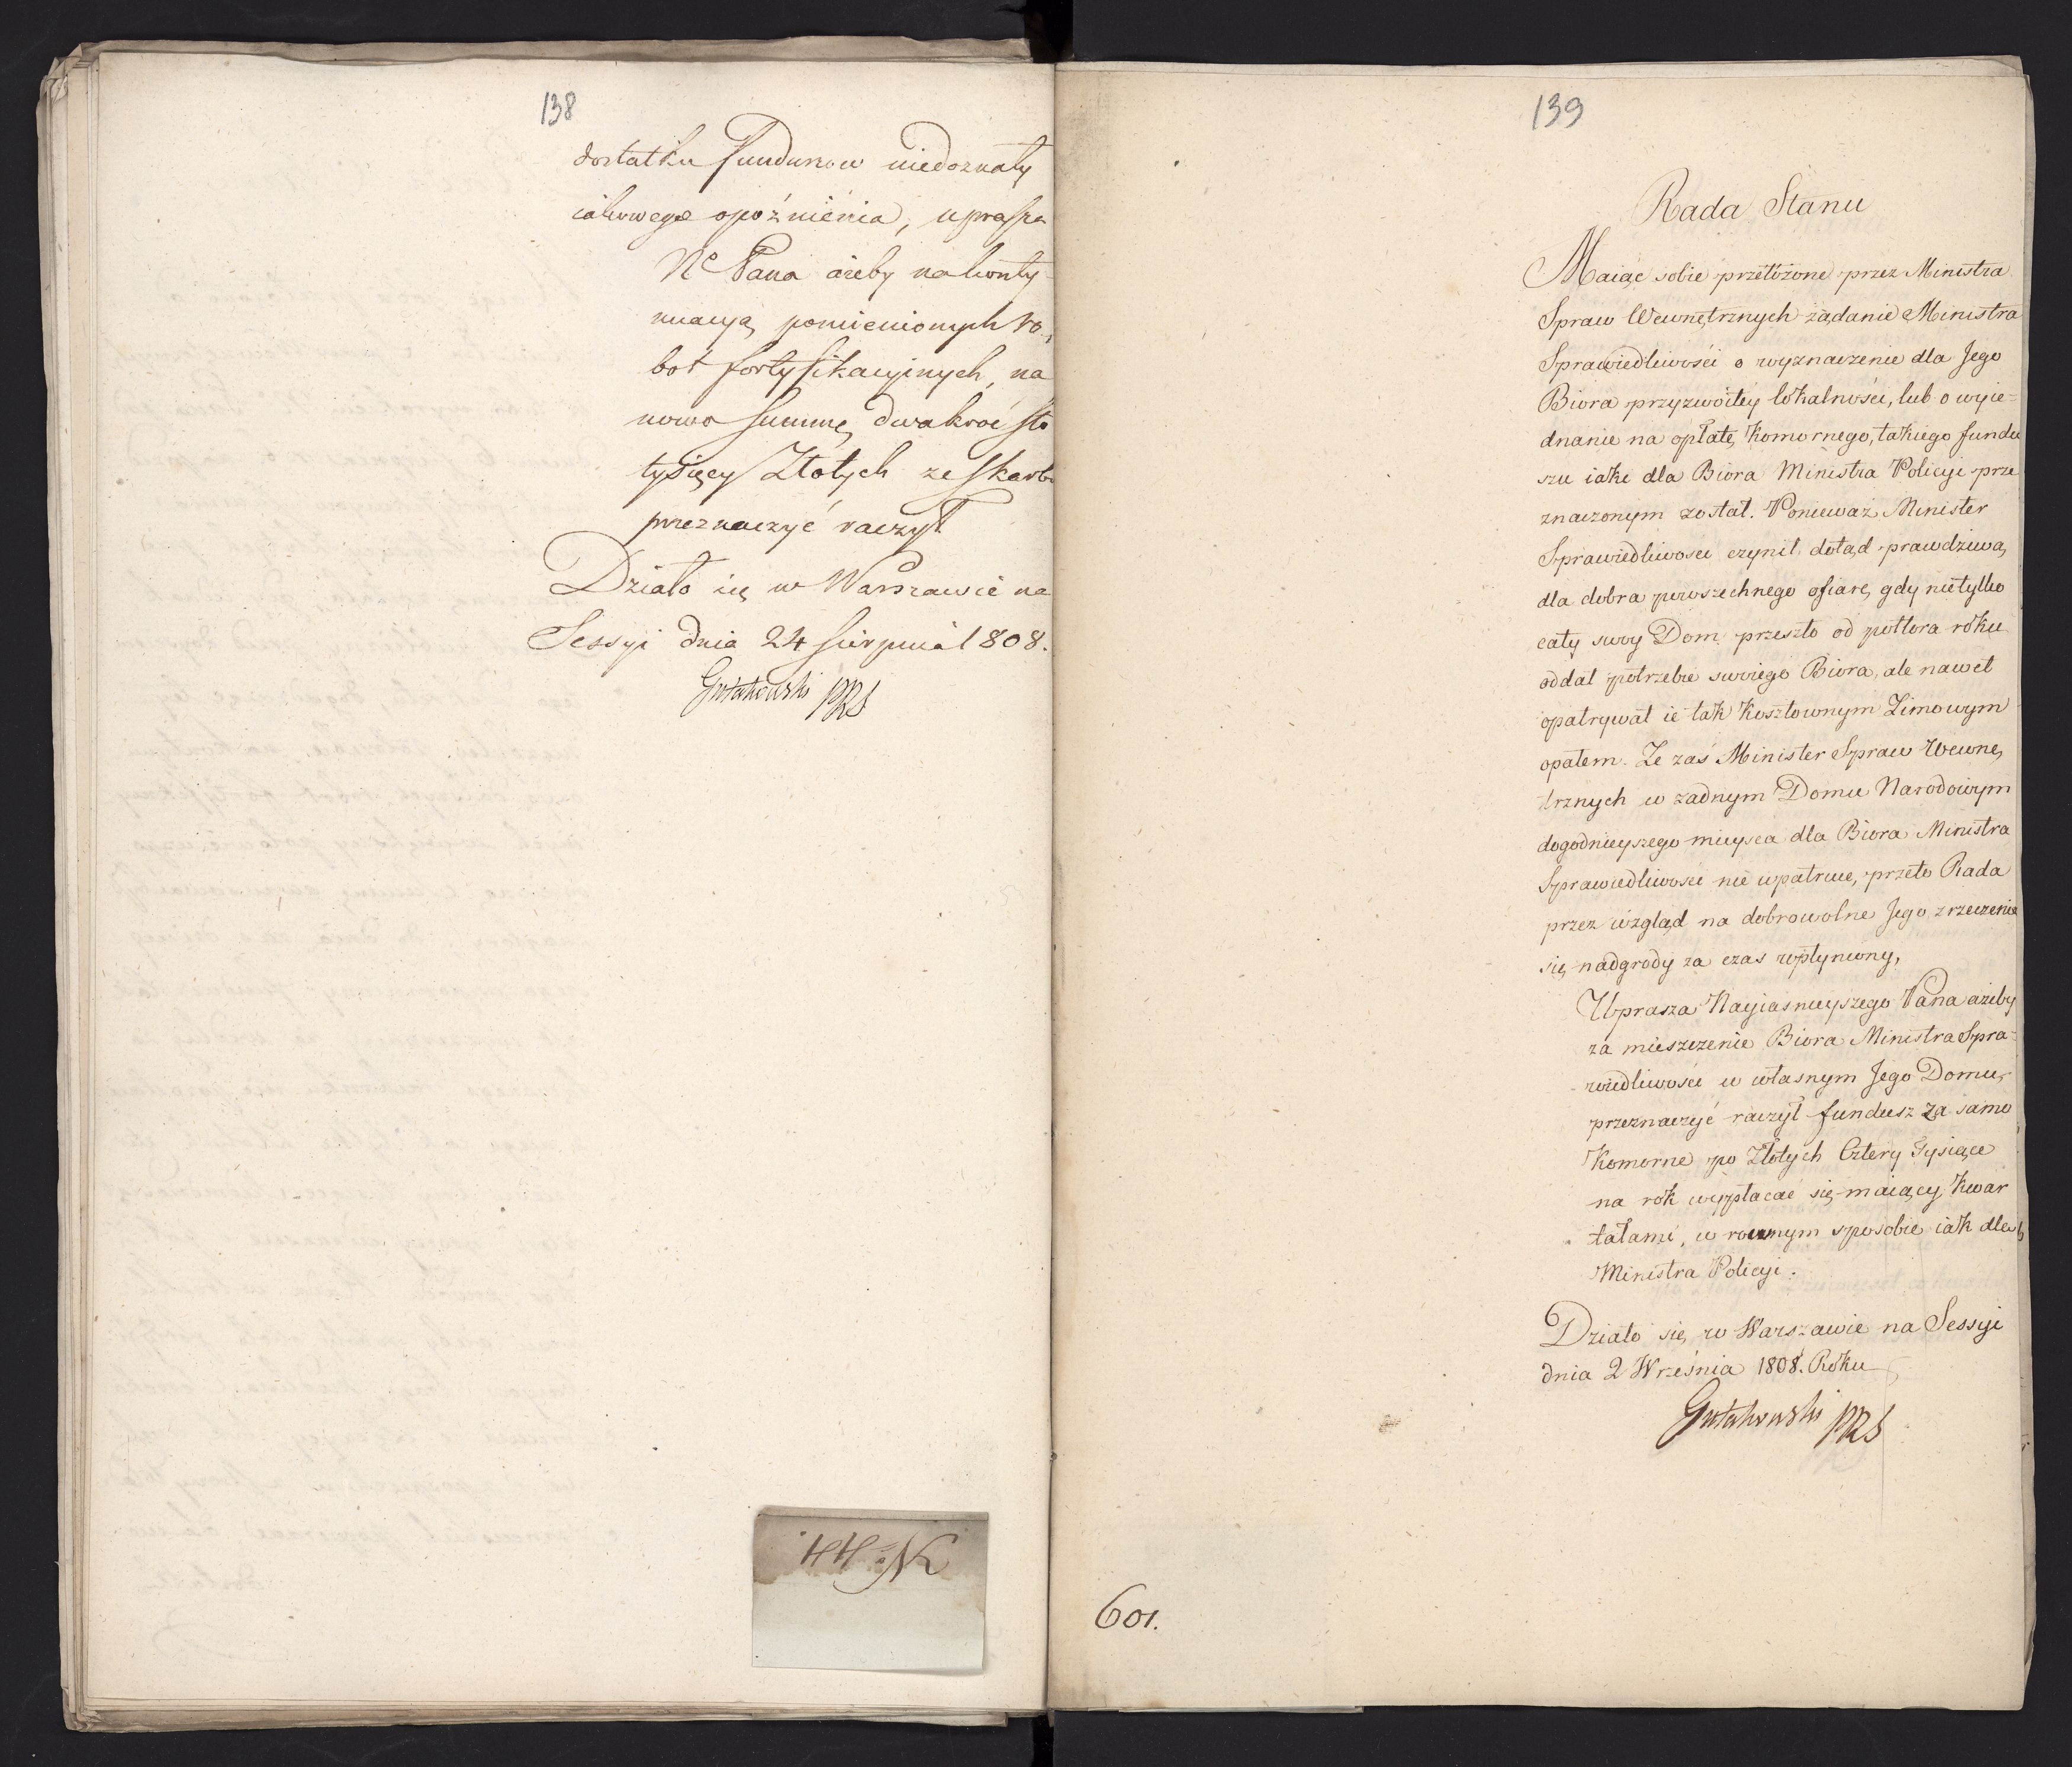 138
dostatku funduszow niedoznały
iakowego opoźnienia, uprasza
N° Pana ażeby na konty
nuacyą pomienionych ro-
bot fortyfikacyinych, na
nowo summę dwakroć sto
tysięcy Złotych ze skarbu
przeznaczyć raczył
Działo się w Warszawie na
Sessyi dnia 24 sierpnia 1808.
Gutakowski PRS
N° 44.
139
Rada Stanu
Maiąc sobie przełożone przez Ministra
Spraw Wewnętrznych żądanie Ministra
Sprawiedliwości o wyznaczenie dla Jego
Biora przyzwoitey lokalności, lub o wyie=
dnanie na opłatę Komornego, takiego fundu
szu iaki dla Biora Ministra Policyi prze
znaczonym został. Ponieważ Minister
Sprawiedliwości czynił dotąd prawdziwą
dla dobra powszechnego ofiarę, gdy nietylko
cały swoy Dom przeszło od połtora roku
oddał potrzebie swoiego Biora, ale nawet
opatrywał ie tak kosztownym Zimowym
opałem. Że zaś Minister Spraw Wewnę
trznych w żadnym Domu Narodowym
dogodnieyszego mieysca dla Biora Ministra
Sprawiedliwości nie upatruie, przeto Rada
przez wzgląd na dobrowolne Jego zrzeczenie
się nadgrody za czas upłyniony,
Uprasza Nayiasnieyszego Pana ażeby
za mieszczenie Biora Ministra Spra=
wiedliwości w własnym Jego Domu,
przeznaczyć raczył fundusz za samo
Komorne po Złotych Cztery Tysiące
na rok wypłacać się maiący, Kwar
tałami, w rownym sposobie iak dla
Ministra Policyi.
Działo się w Warszawie na Sessyi
dnia 2 Września 1808. Roku
Gutakowski PRS
601.